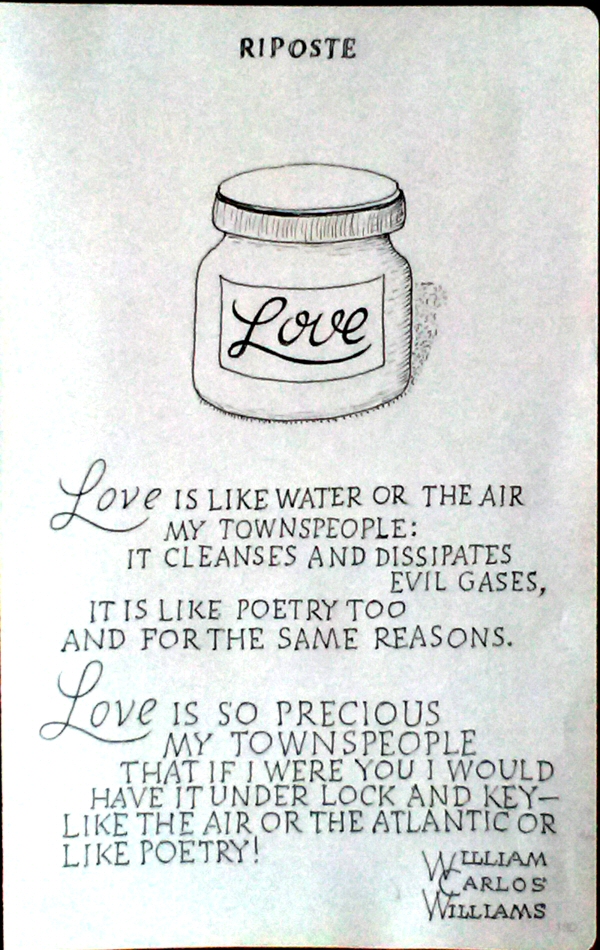 RIPOSTE
Love
Love IS LIKE WATER OR THE AIR
MY TOWNSPEOPLE:
IT CLEANSES AND DISSIPATES
EVIL GASES,
IT IS LIKE POETRY TOO
AND FOR THE SAME REASONS.
Love IS SO PRECIOUS
MY TOWNSPEOPLE
THAT IF I WERE YOU I WOULD
HAVE IT UNDER LOCK AND KEY—
LIKE THE AIR OR THE ATLANTIC OR
LIKE POETRY!
WILLIAM
CARLOS
WILLIAMS